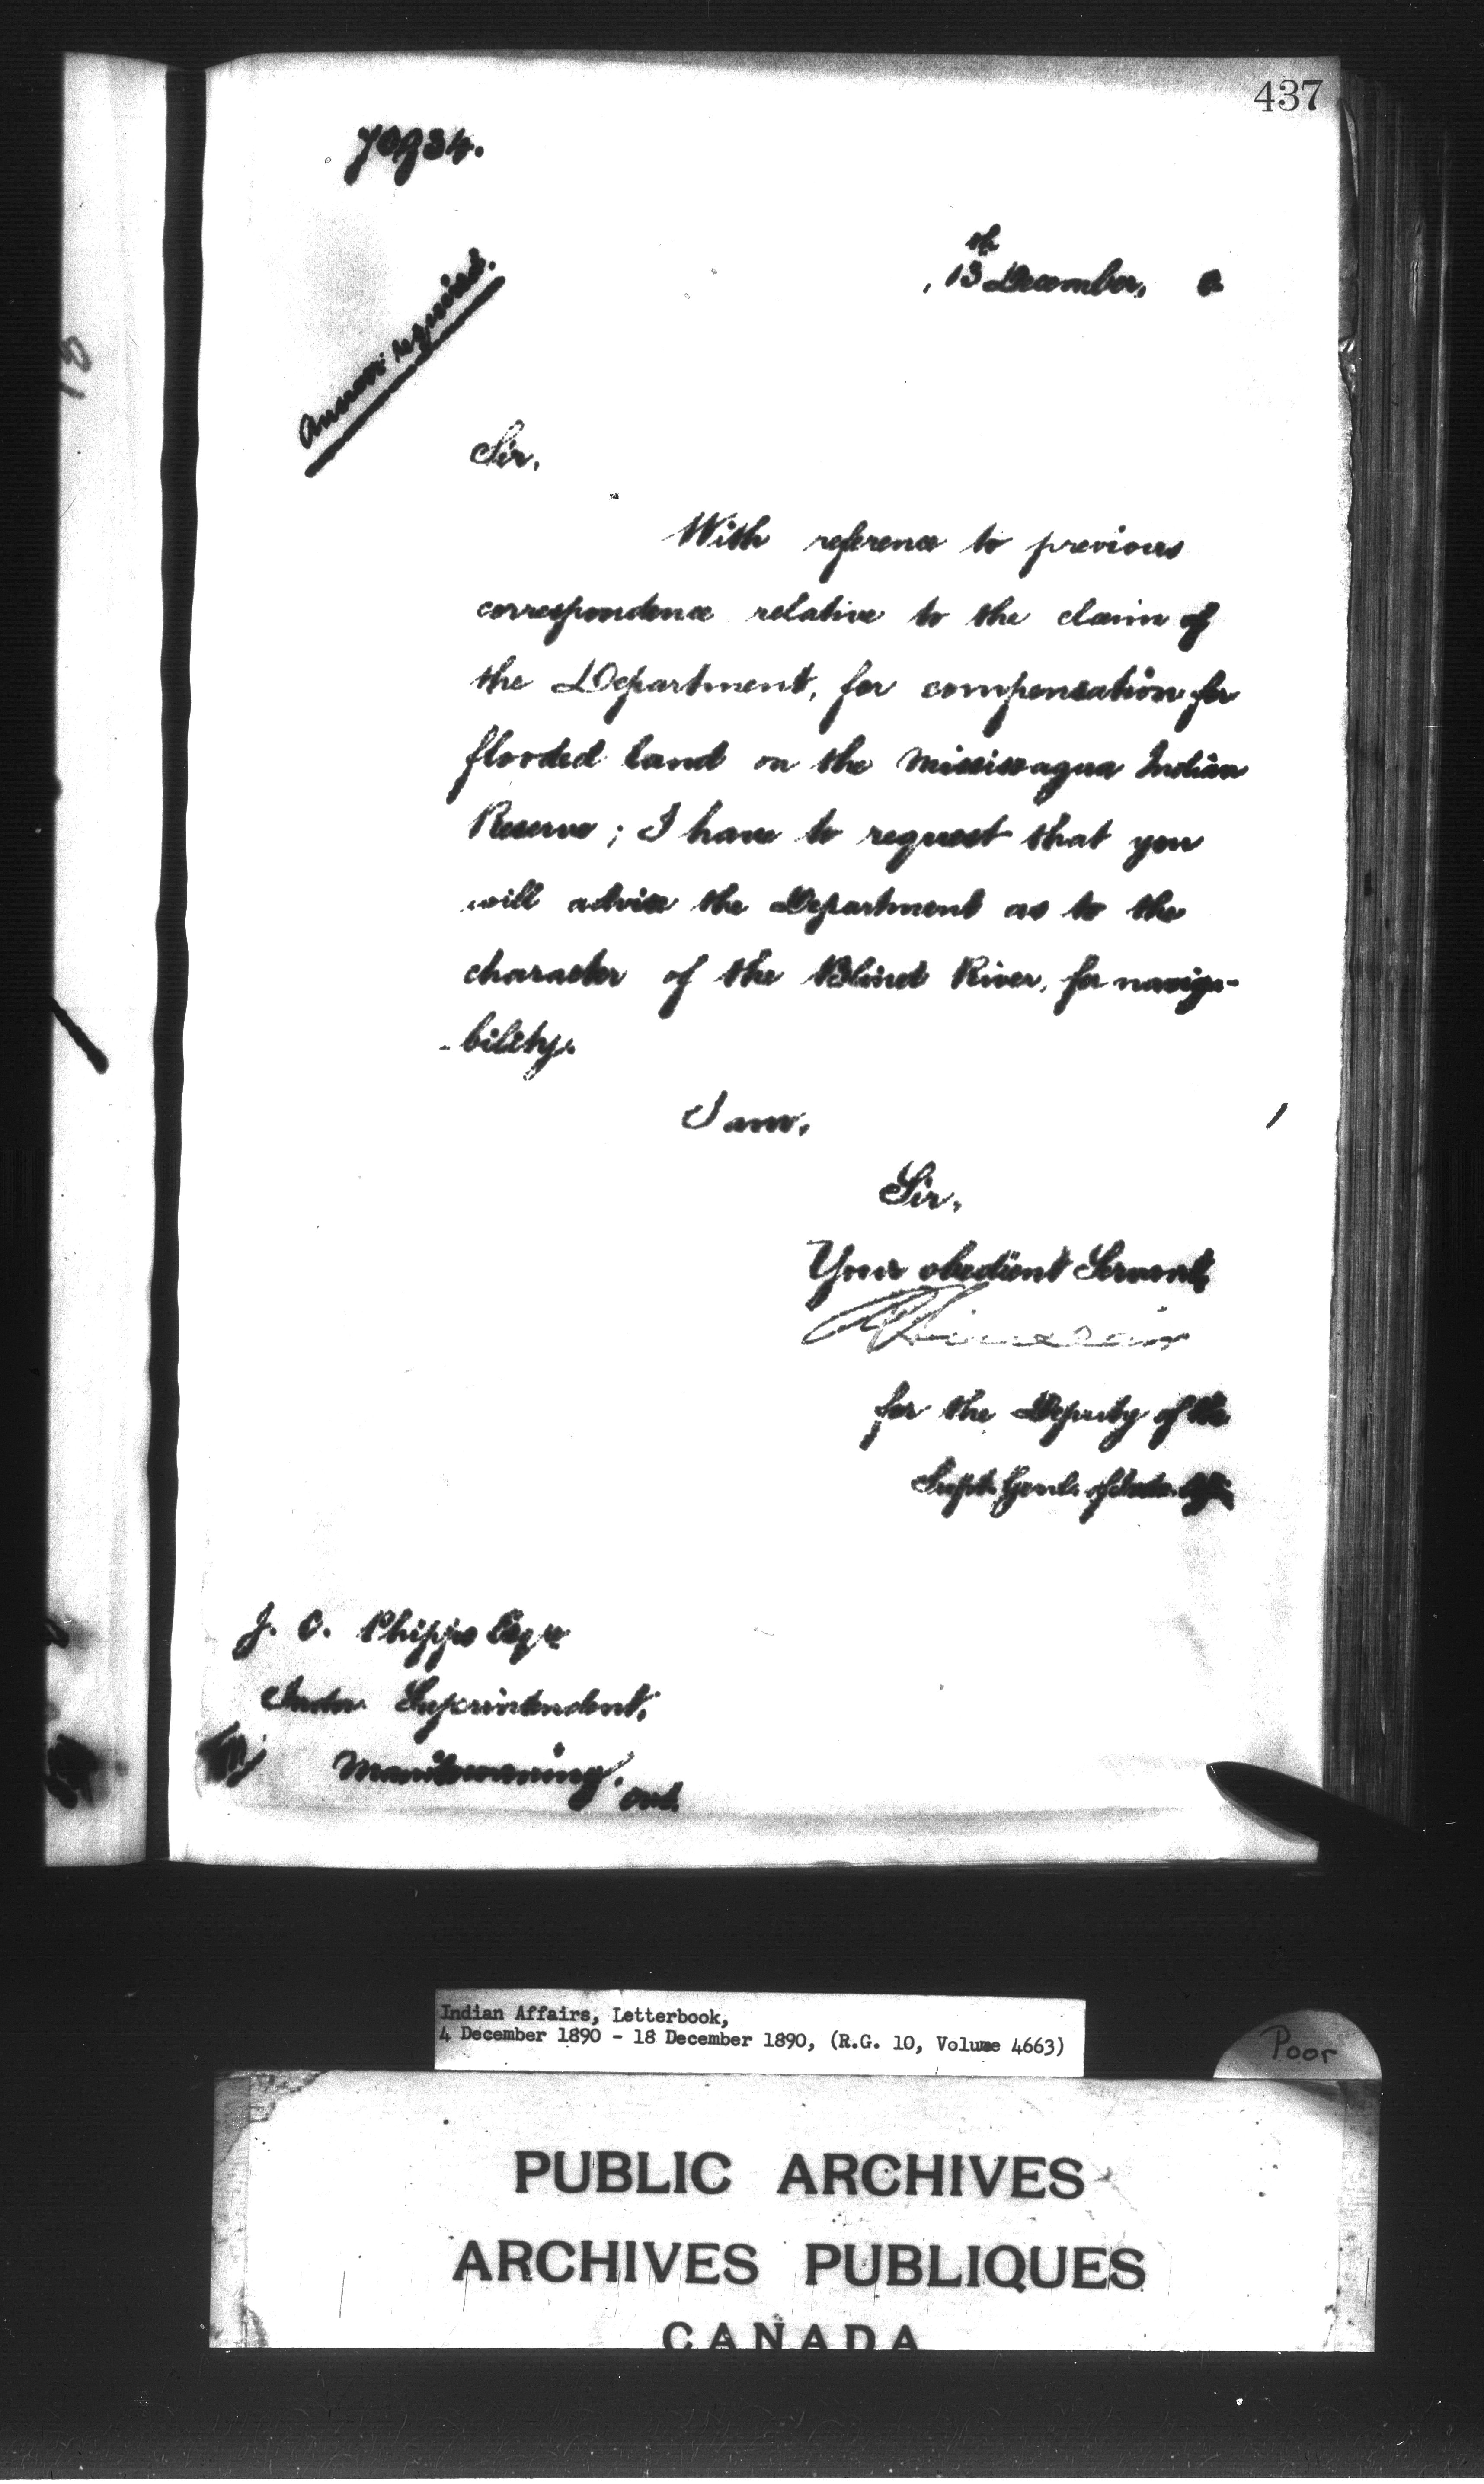 437
70934.
Answer required.
13th December, 0
Sir,
With reference to previous
correspondence relative to the claim of
the Department, for compensation for
flooded land on the Mississagua Indian
Reserve; I have to request that you
will advise the Department as to the
character of the Blind River, for naviga-
-bility.
I am,
Sir,
Your obedient Servant,
for the Deputy of the
Supt. Genl. of Indn. Affrs
J. C. Phipps Esqre
Indn. Superintendent,
Manitowaning. Ont.
Indian Affairs, Letterbook,
4 December 1890 - 18 December 1890, (R.G. 10, Volume 4663)
Poor
PUBLIC ARCHIVES
ARCHIVES PUBLIQUES
CANADA